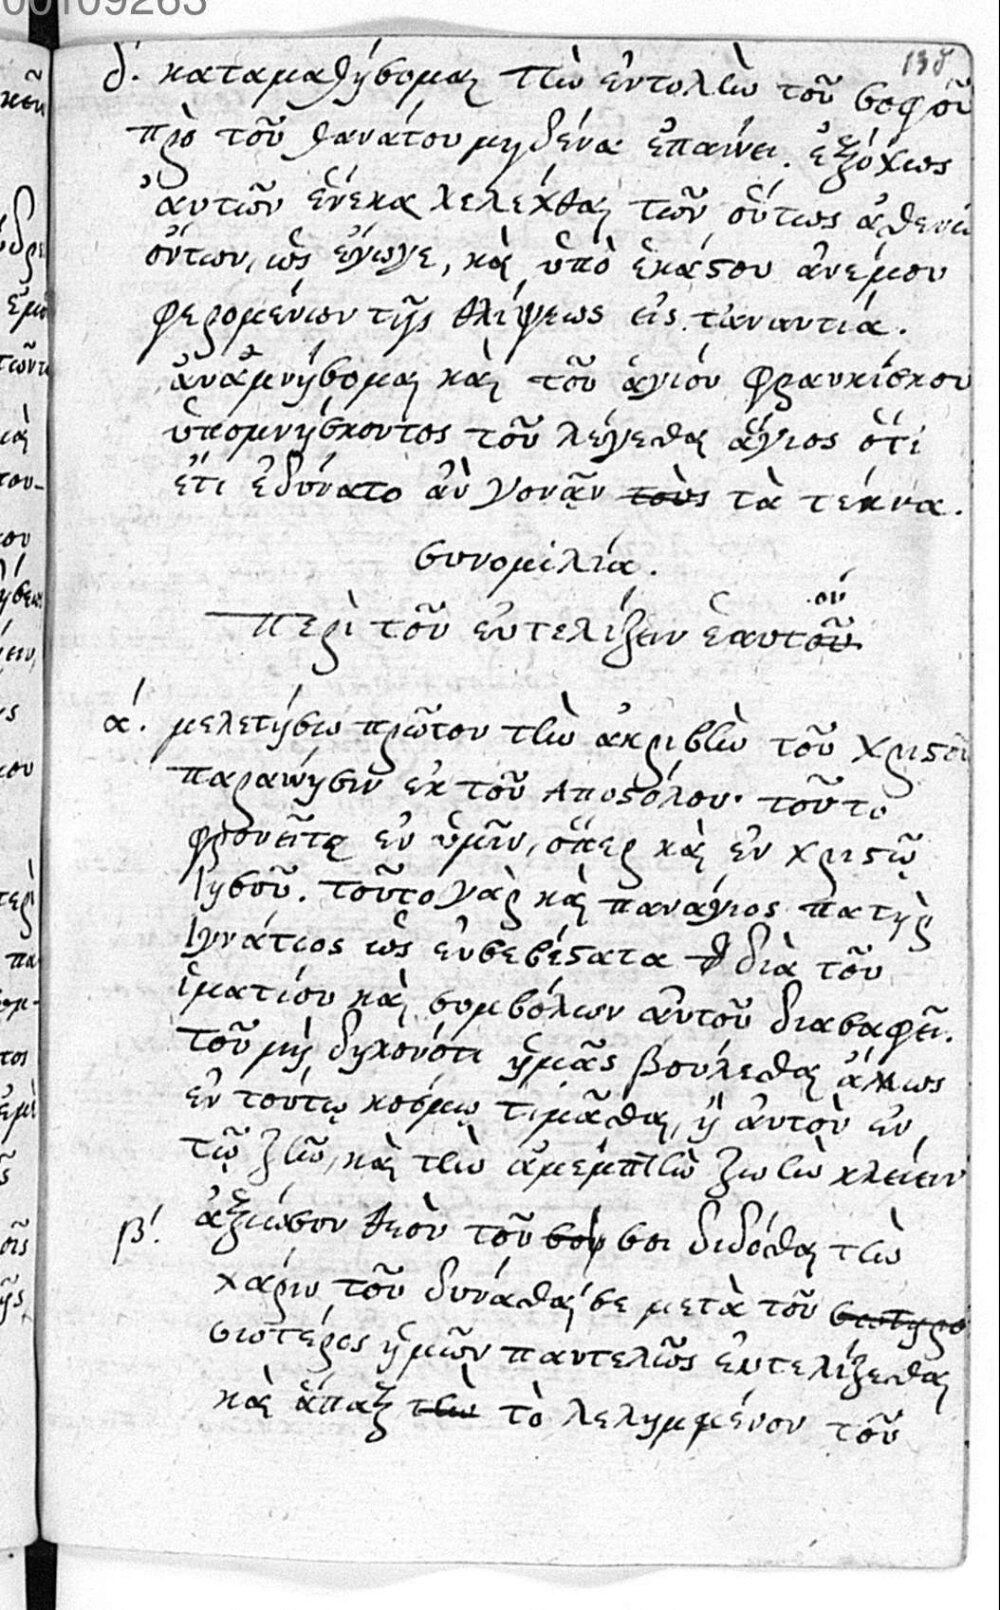 00109263
138
δ΄. καταμαθήσομαι τὴν ἐντολὴν τοῦ σοφοῦ
πρὸ τοῦ θανάτου μηδένα ἐπαίνει. ἐξόχως
ἀυτῶν ἕνεκα λελέχθαι τῶν οὕτως ἀσθενῶ
ὄντων, ὡς ἔγωγε, καὶ ὑπὸ ἑκάστου ἀνέμου
φερομένων τῆς θλίψεως εἰς ταναντιά.
ἀναμνήσομαι καὶ τοῦ ἁγιόυ φρανκίσκου
ὑπομνήσκοντος τοῦ λέγεσθαι ἅγιος ὅτι
ἔτι ἐδύνατο ἂν γονᾷν τοὺς τὰ τέκνα.
συνομιλία.
όν
Περὶ τοῦ ἐυτελίζειν ἑαυτοῦ.
ά. μελετήσω πρῶτον τὴν ἀκριβὴν τοῦ Χριστοῦ
παραίνησιν ἐκ τοῦ Αποστόλου· τοῦτο
φρονεῖτε ἐν ὑμῖν, ὅπερ καὶ ἐν χριστῷ
Ἰησοῦ. τοῦτο γὰρ καὶ πανάγιος πατὴρ
Ἰγνάτιος ὡς ἐυσεβέστατα διὰ τοῦ
ἱματίου καὶ συμβόλων ἀυτοῦ διασαφεῖ.
Τοῦ μὴ δηλονότι ἡμᾶς βούλεσθαι ἄλλως
ἐν τούτῳ κόσμῳ τιμᾶσθαι, ἢ ἀυτὸν ἐν
τῷ ζῆν, καὶ τὴν ἀμέμπτὴν ζωὴν κλείειν
β΄. ἀξίωσον θεὸν τοῦ σοι διδόσθαι τὴν
χάριν τοῦ δύνασθαί σε μετὰ τοῦ σωτηρο
σωτέρος ἡμῶν παντελῶς ἐυτελίζεσθαι
καὶ ἅπαξ τὴν τὸ λελημμένον τοῦ